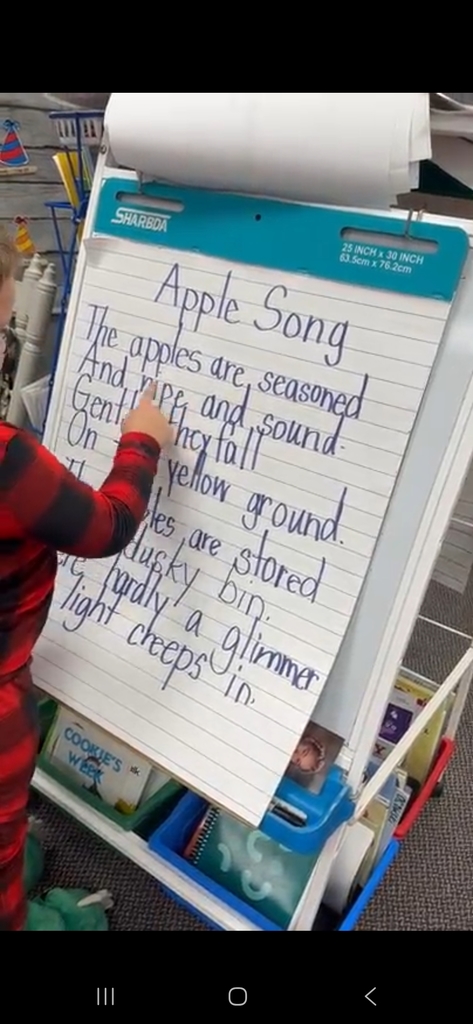 SHARBDA
25 INCH x 30 INCH
63.5cm x 76.2cm
Apple Song
The apples are seasoned
And ripe and sound.
they fall
On yellow ground.
are stored
dusky bin.
hardly a glimmer
light creeps in.
COOKIE'S
WEEK